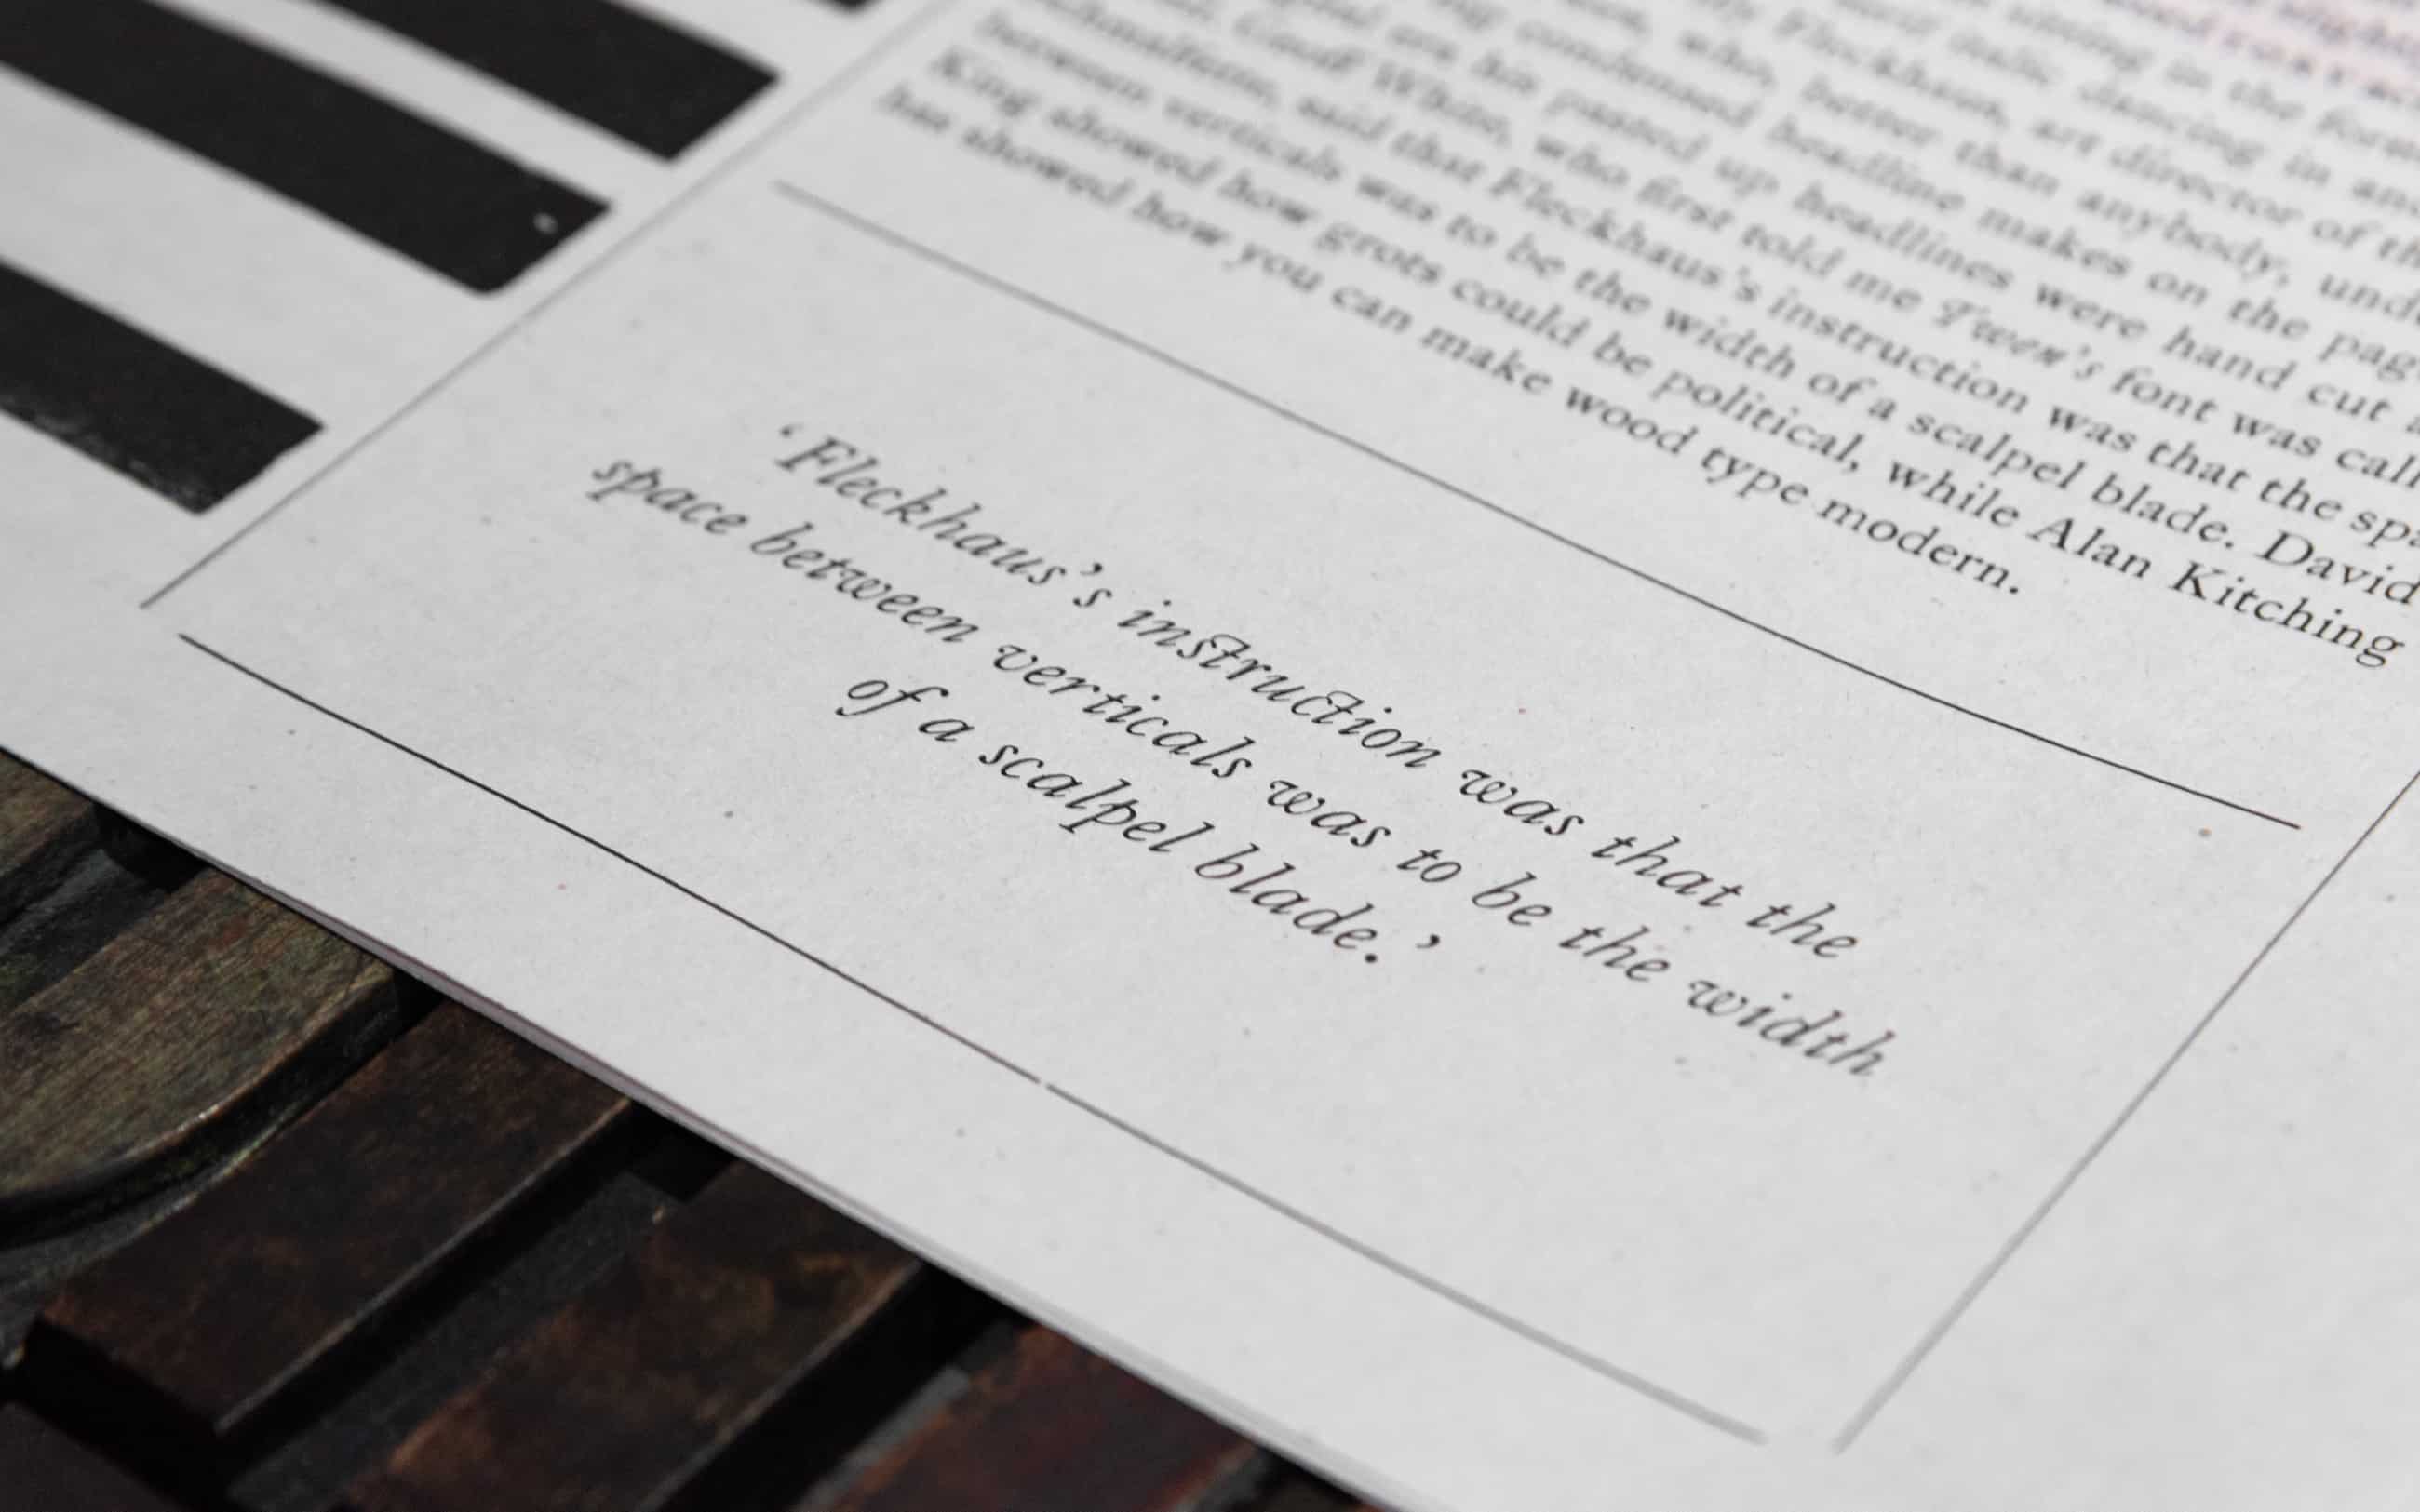 sitting in the
and italic dancing in
Fleckhaus, art director of
who, better than anybody,
condensed headline makes on the
his pasted up headlines were hand cut
Geoff White, who first told me Twen's font was
said that Fleckhaus's instruction was that the
between verticals was to be the width of a scalpel blade. David
King showed how grots could be political, while Alan Kitching
has showed how you can make wood type modern.
‘Fleckhaus’s instruction was that the
space between verticals was to be the width
of a scalpel blade.’